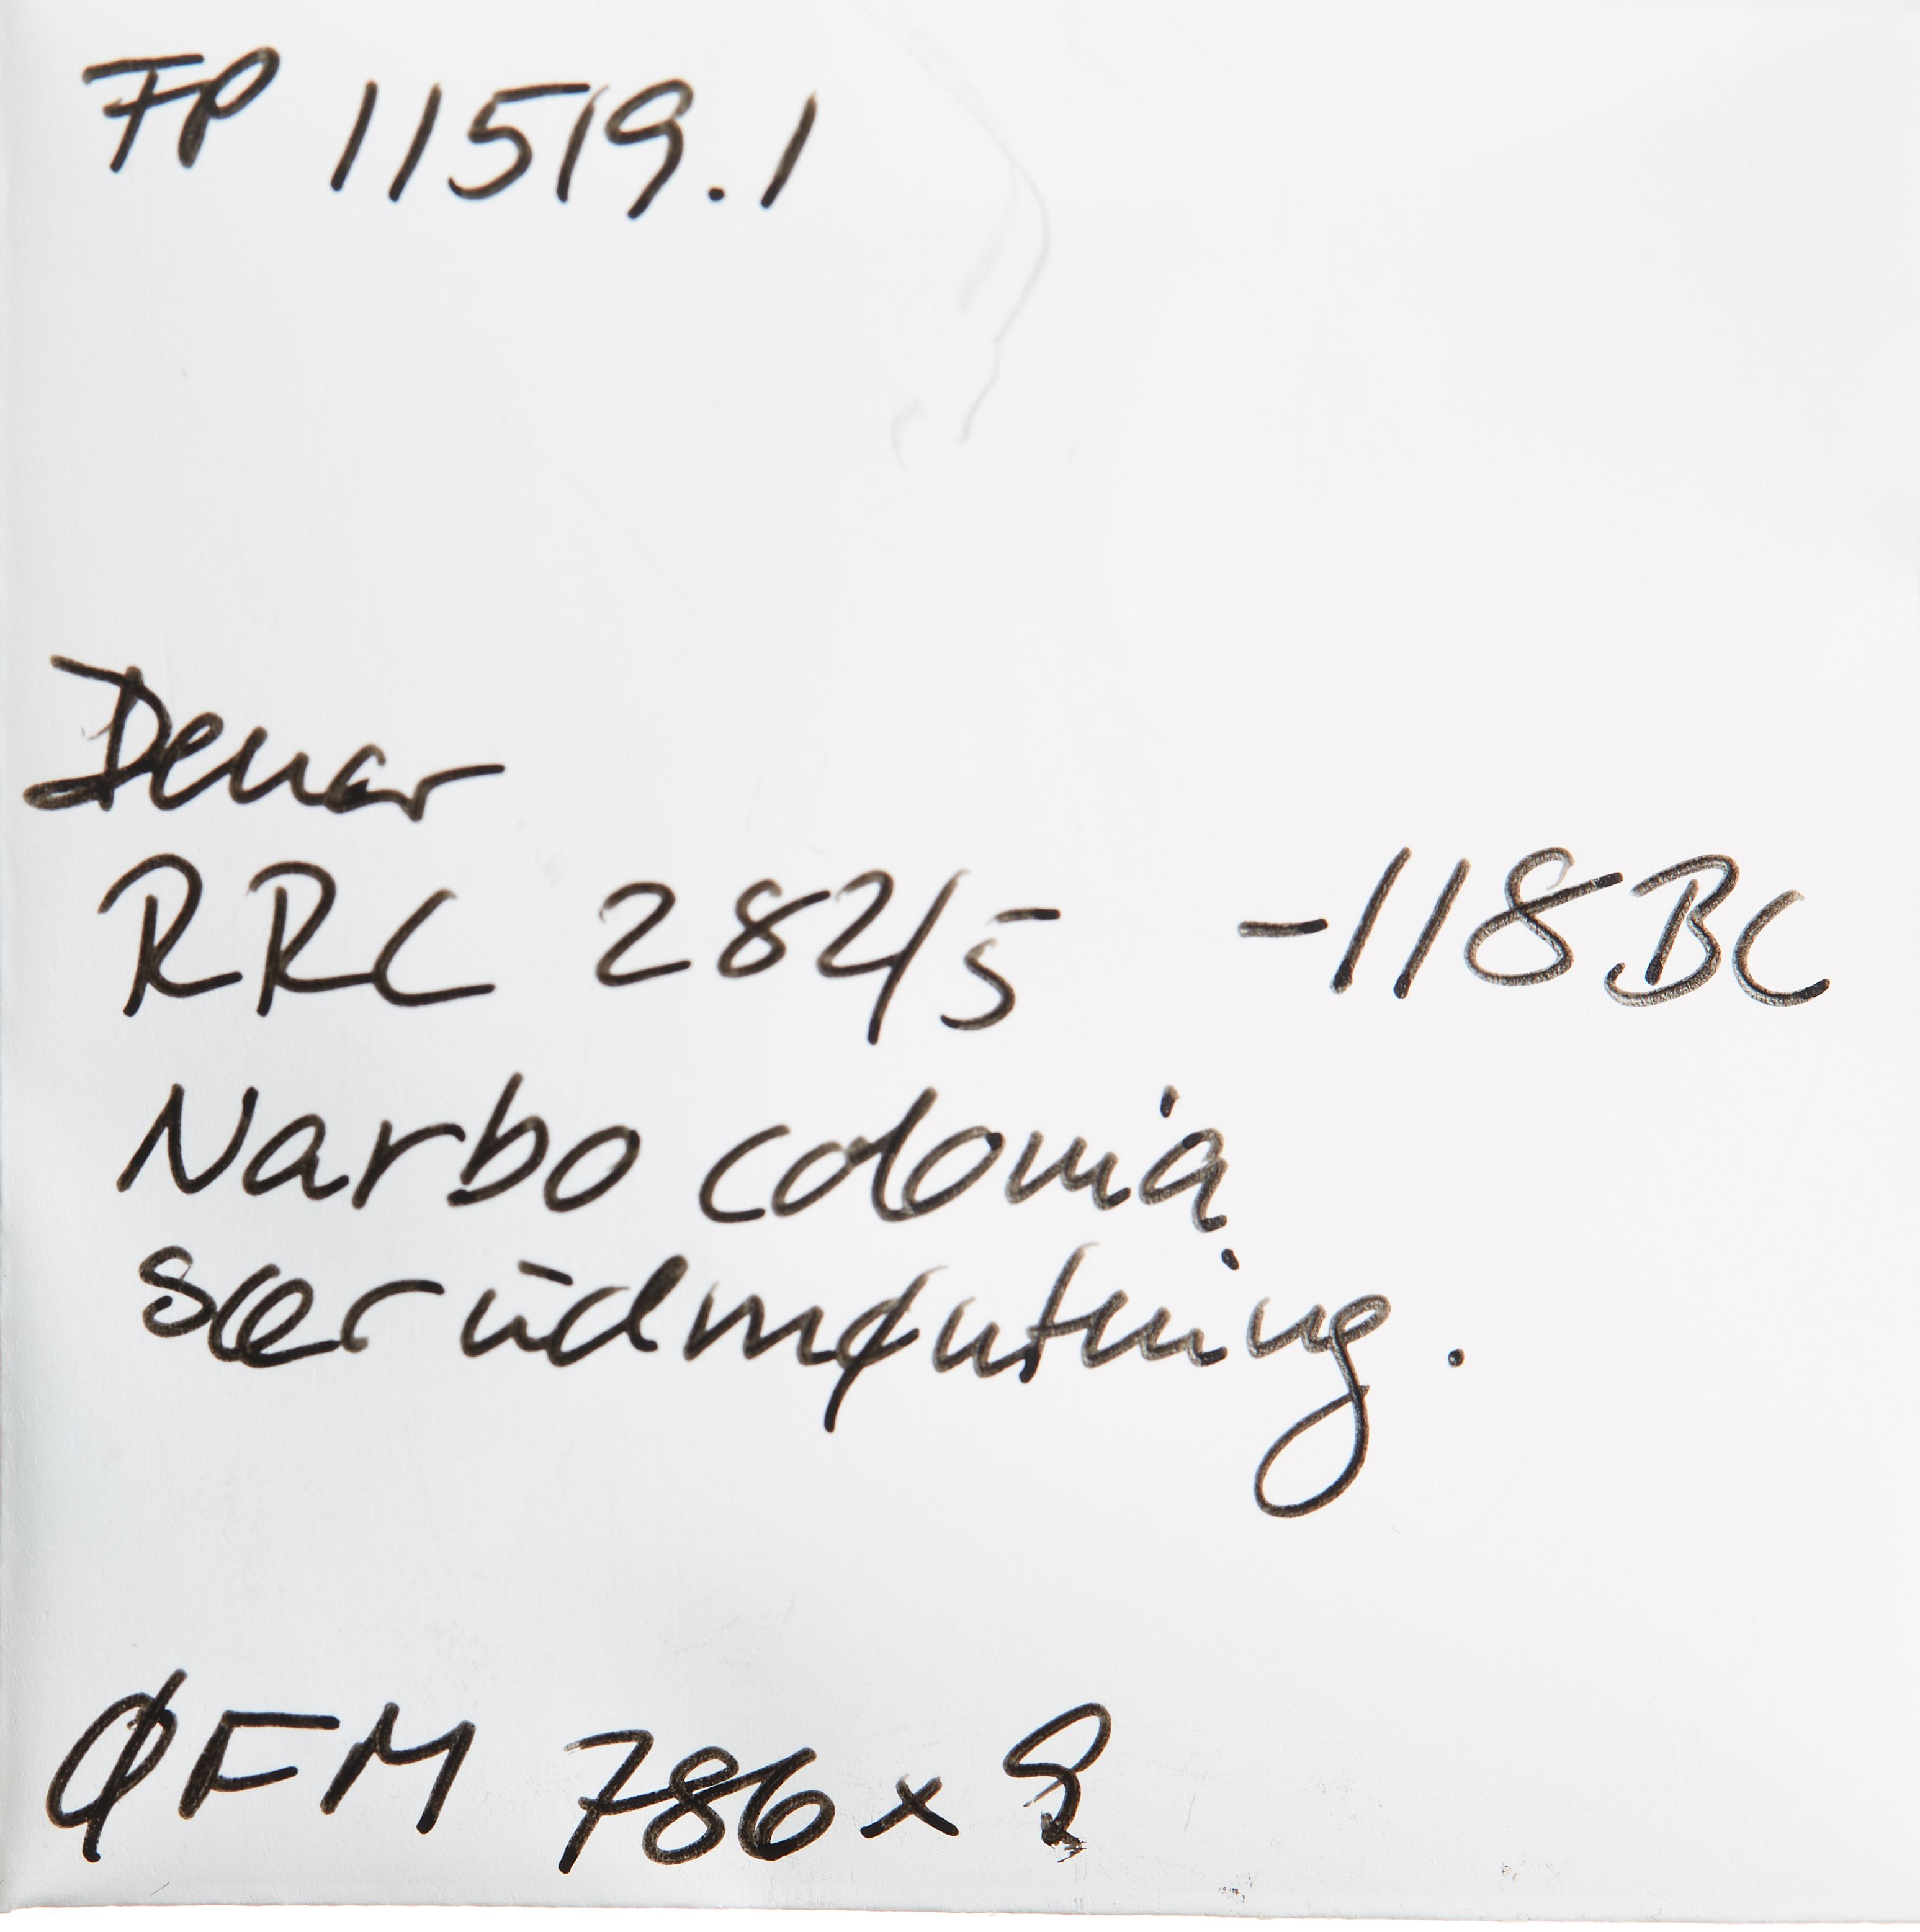 FP 11519.1
Denar
RRC 282/5 -118 BC
Narbo colonia
særudmøntning.
ØFM 786x8